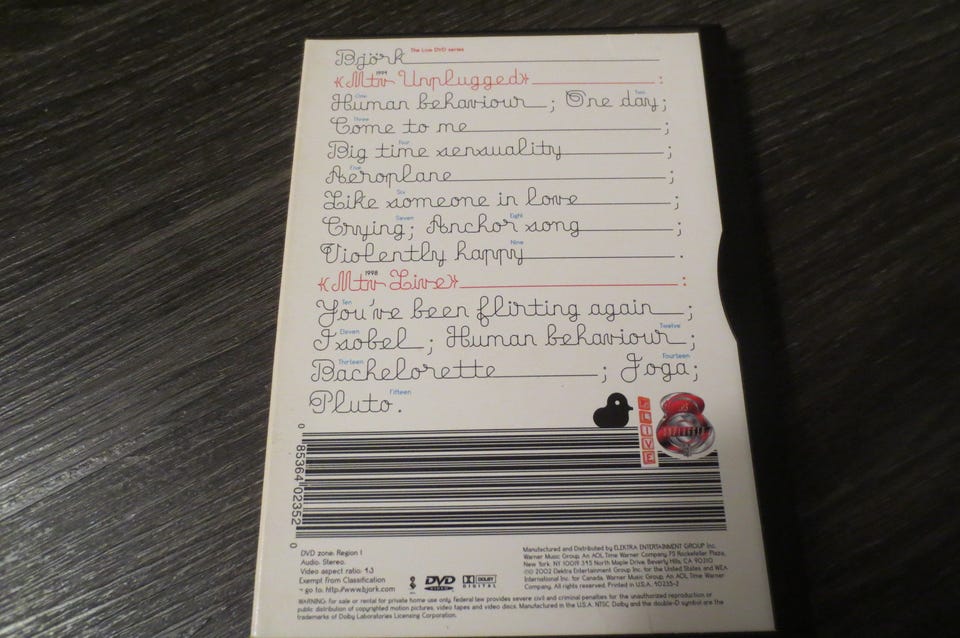 Björk The Live DVD series
«Mtv 1994 Unplugged» :
One Human behaviour ; Two One day;
Three Come to me ;
Four Big time sensuality ;
Five Aeroplane ;
Six Like someone in love ;
Seven Crying; Eight Anchor song ;
Nine Violently happy .
«Mtv 1998 Live» :
Ten You've been flirting again ;
Eleven Isobel ; Twelve Human behaviour ;
Thirteen Bachelorette ; Fourteen Joga;
Fifteen Pluto.
LIVE
0 85364 02352 0
DVD zone: Region 1
Audio: Stereo.
Video aspect ratio: 4:3
Exempt from Classification
→ go to: http://www.bjork.com
DVD VIDEO
DOLBY DIGITAL
Manufactured and Distributed by ELEKTRA ENTERTAINMENT GROUP Inc.
Warner Music Group, An AOL Time Warner Company 75 Rockefeller Plaza,
New York, NY 10019 345 North Maple Drive, Beverly Hills, CA 90210
©℗ 2002 Elektra Entertainment Group Inc. for the United States and WEA
International Inc. for Canada. Warner Music Group, An AOL Time Warner
Company. All rights reserved. Printed in U.S.A. 40235-2
WARNING: for sale or rental for private home use only. federal law provides severe civil and criminal penalties for the unauthorized reproduction or
public distribution of copyrighted motion pictures, video tapes and video discs. Manufactured in the U.S.A. NTSC. Dolby and the double-D symbol are the
trademarks of Dolby Laboratories Licensing Corporation.